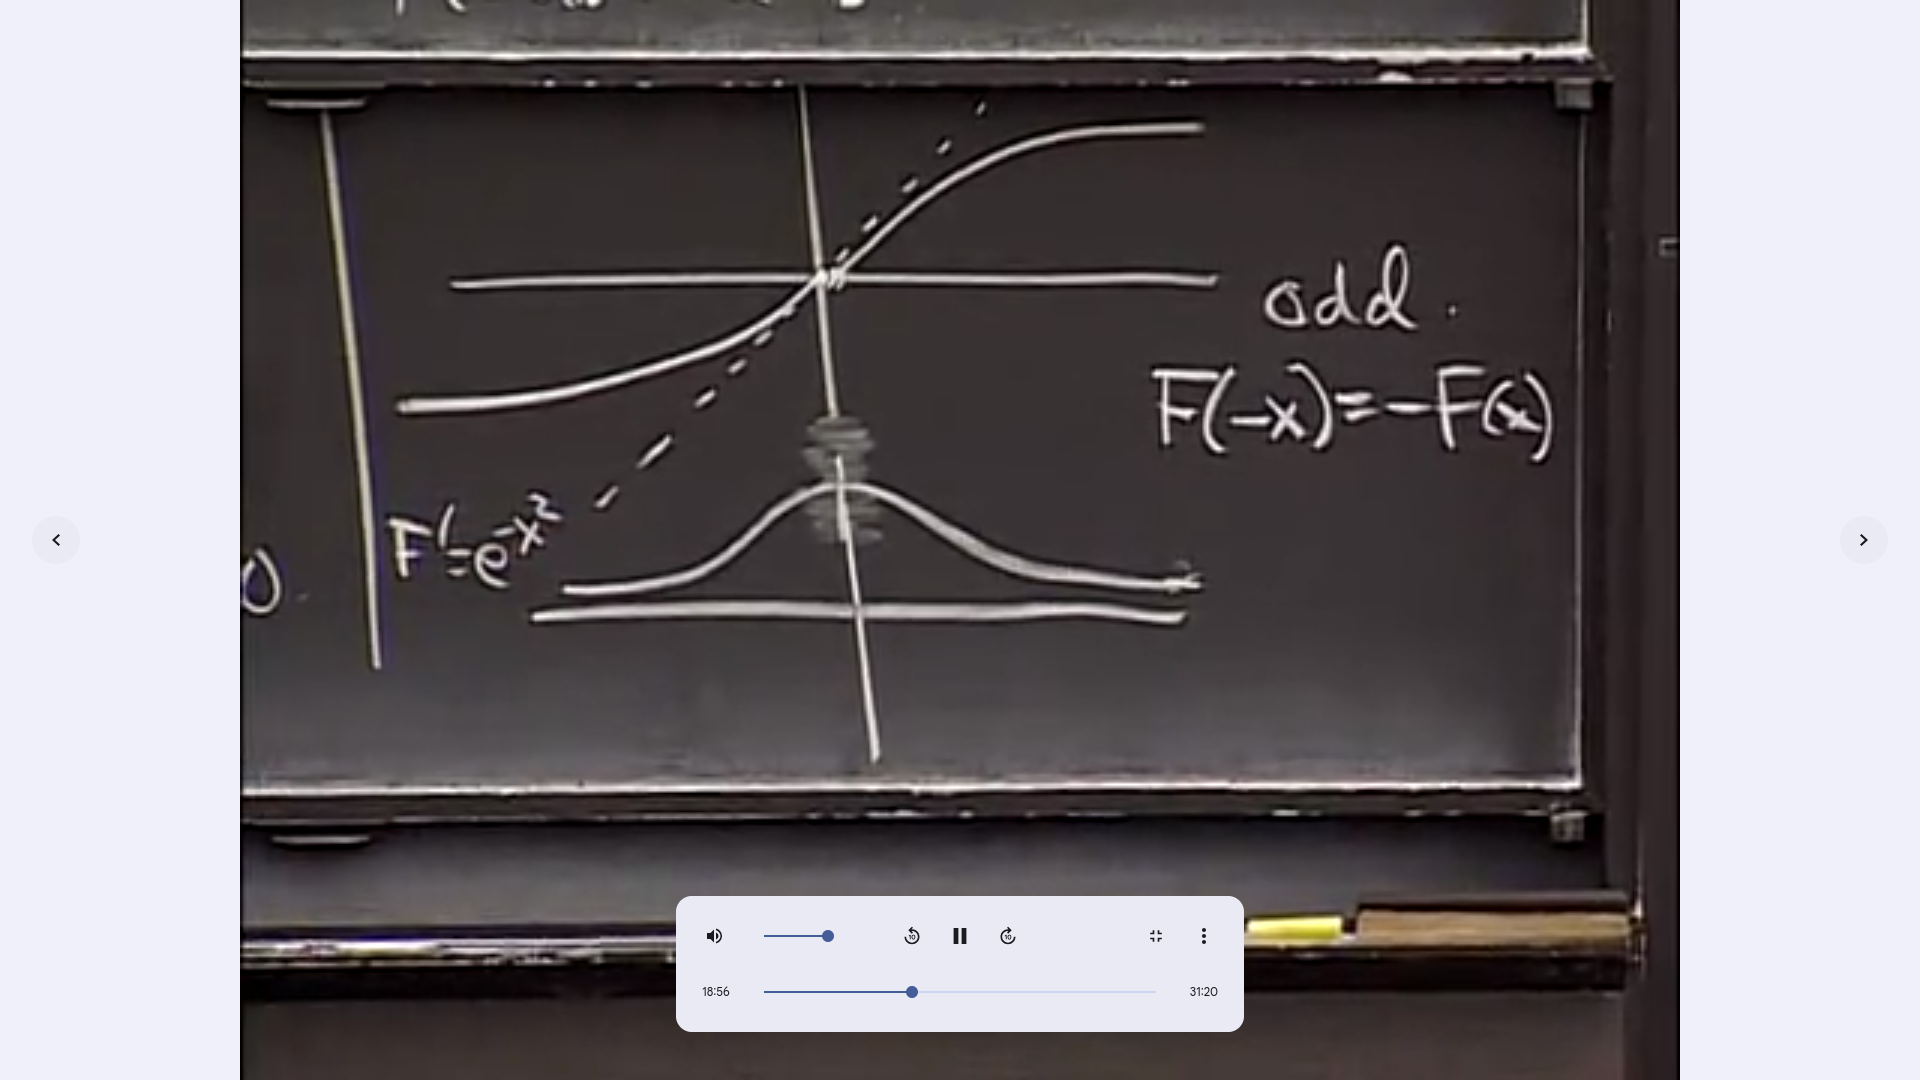 odd.
F(-x)=-F(x)
F'=e^-x²
0.
18:56
31:20